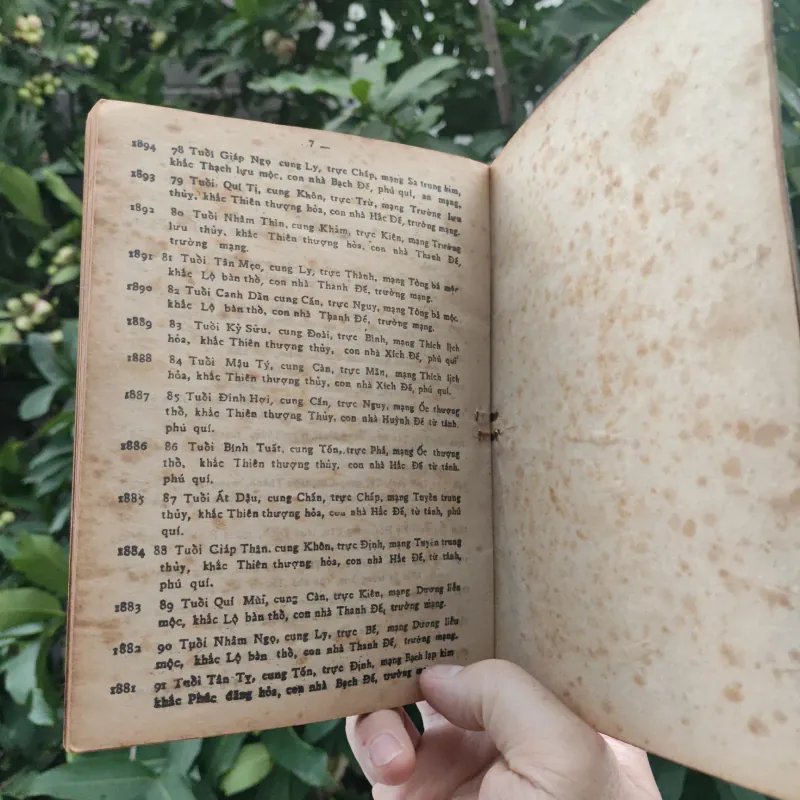 — 7 —
1894 78 Tuổi Giáp Ngọ cung Ly, trực Chấp, mạng Sa trung kim,
khắc Thạch lựu mộc, con nhà Bạch Đế, phú quí, an mạng,
1893 79 Tuổi Quí Tị, cung Khôn, trực Trừ, mạng Trường lưu
thủy, khắc Thiên thượng hỏa, con nhà Hắc Đế, trường mạng.
1892 80 Tuổi Nhâm Thìn, cung Khảm, trực Kiên, mạng Trường
lưu thủy, khắc Thiên thượng hỏa, con nhà Thanh Đế,
trường mạng.
1891 81 Tuổi Tân Mẹo, cung Ly, trực Thành, mạng Tòng bá mộc
khắc Lộ bàn thồ, con nhà Thanh Đế, trường mạng.
1890 82 Tuổi Canh Dần cung Cấn, trực Nguy, mạng Tòng bá mộc.
khắc Lộ bàn thồ, con nhà Thanh Đế, trường mạng.
1889 83 Tuổi Kỷ Sửu, cung Đoài, trực Bình, mạng Thích lịch
hỏa, khắc Thiên thượng thủy, con nhà Xích Đế, phú quí
1888 84 Tuổi Mậu Tý, cung Càn, trực Mãn, mạng Thích lịch
hỏa, khắc Thiên thượng thủy, con nhà Xích Đế, phú quí.
1887 85 Tuổi Đinh Hợi, cung Cấn, trực Nguy, mạng Ốc thượng
thồ, khắc Thiên thượng Thủy, con nhà Huỳnh Đế từ tánh.
phú quí.
1886 86 Tuổi Bính Tuất, cung Tốn, trực Phá, mạng Ốc thượng
thồ, khắc Thiên thượng thủy, con nhà Hắc Đế, từ tánh.
phú quí.
1885 87 Tuổi Ất Dậu, cung Chấn, trực Chấp, mạng Tuyền trung
thủy, khắc Thiên thượng hỏa, con nhà Hắc Đế, từ tánh, phú
quí.
1884 88 Tuổi Giáp Thân, cung Khôn, trực Định, mạng Tuyền trung
thủy, khắc Thiên thượng hỏa, con nhà Hắc Đế, từ tánh,
phú quí.
1883 89 Tuổi Quí Mùi, cung Càn, trực Kiên, mạng Dương liễu
mộc, khắc Lộ bàn thồ, con nhà Thanh Đế, trường mạng.
1882 90 Tuổi Nhâm Ngọ, cung Ly, trực Bế, mạng Dương liễu
mộc, khắc Lộ bàn thồ, con nhà Thanh Đế, trường mạng.
1881 91 Tuổi Tân Tỵ, cung Tốn, trực Định, mạng Bạch lạp kim
khắc Phúc đăng hỏa, con nhà Bạch Đế, trường